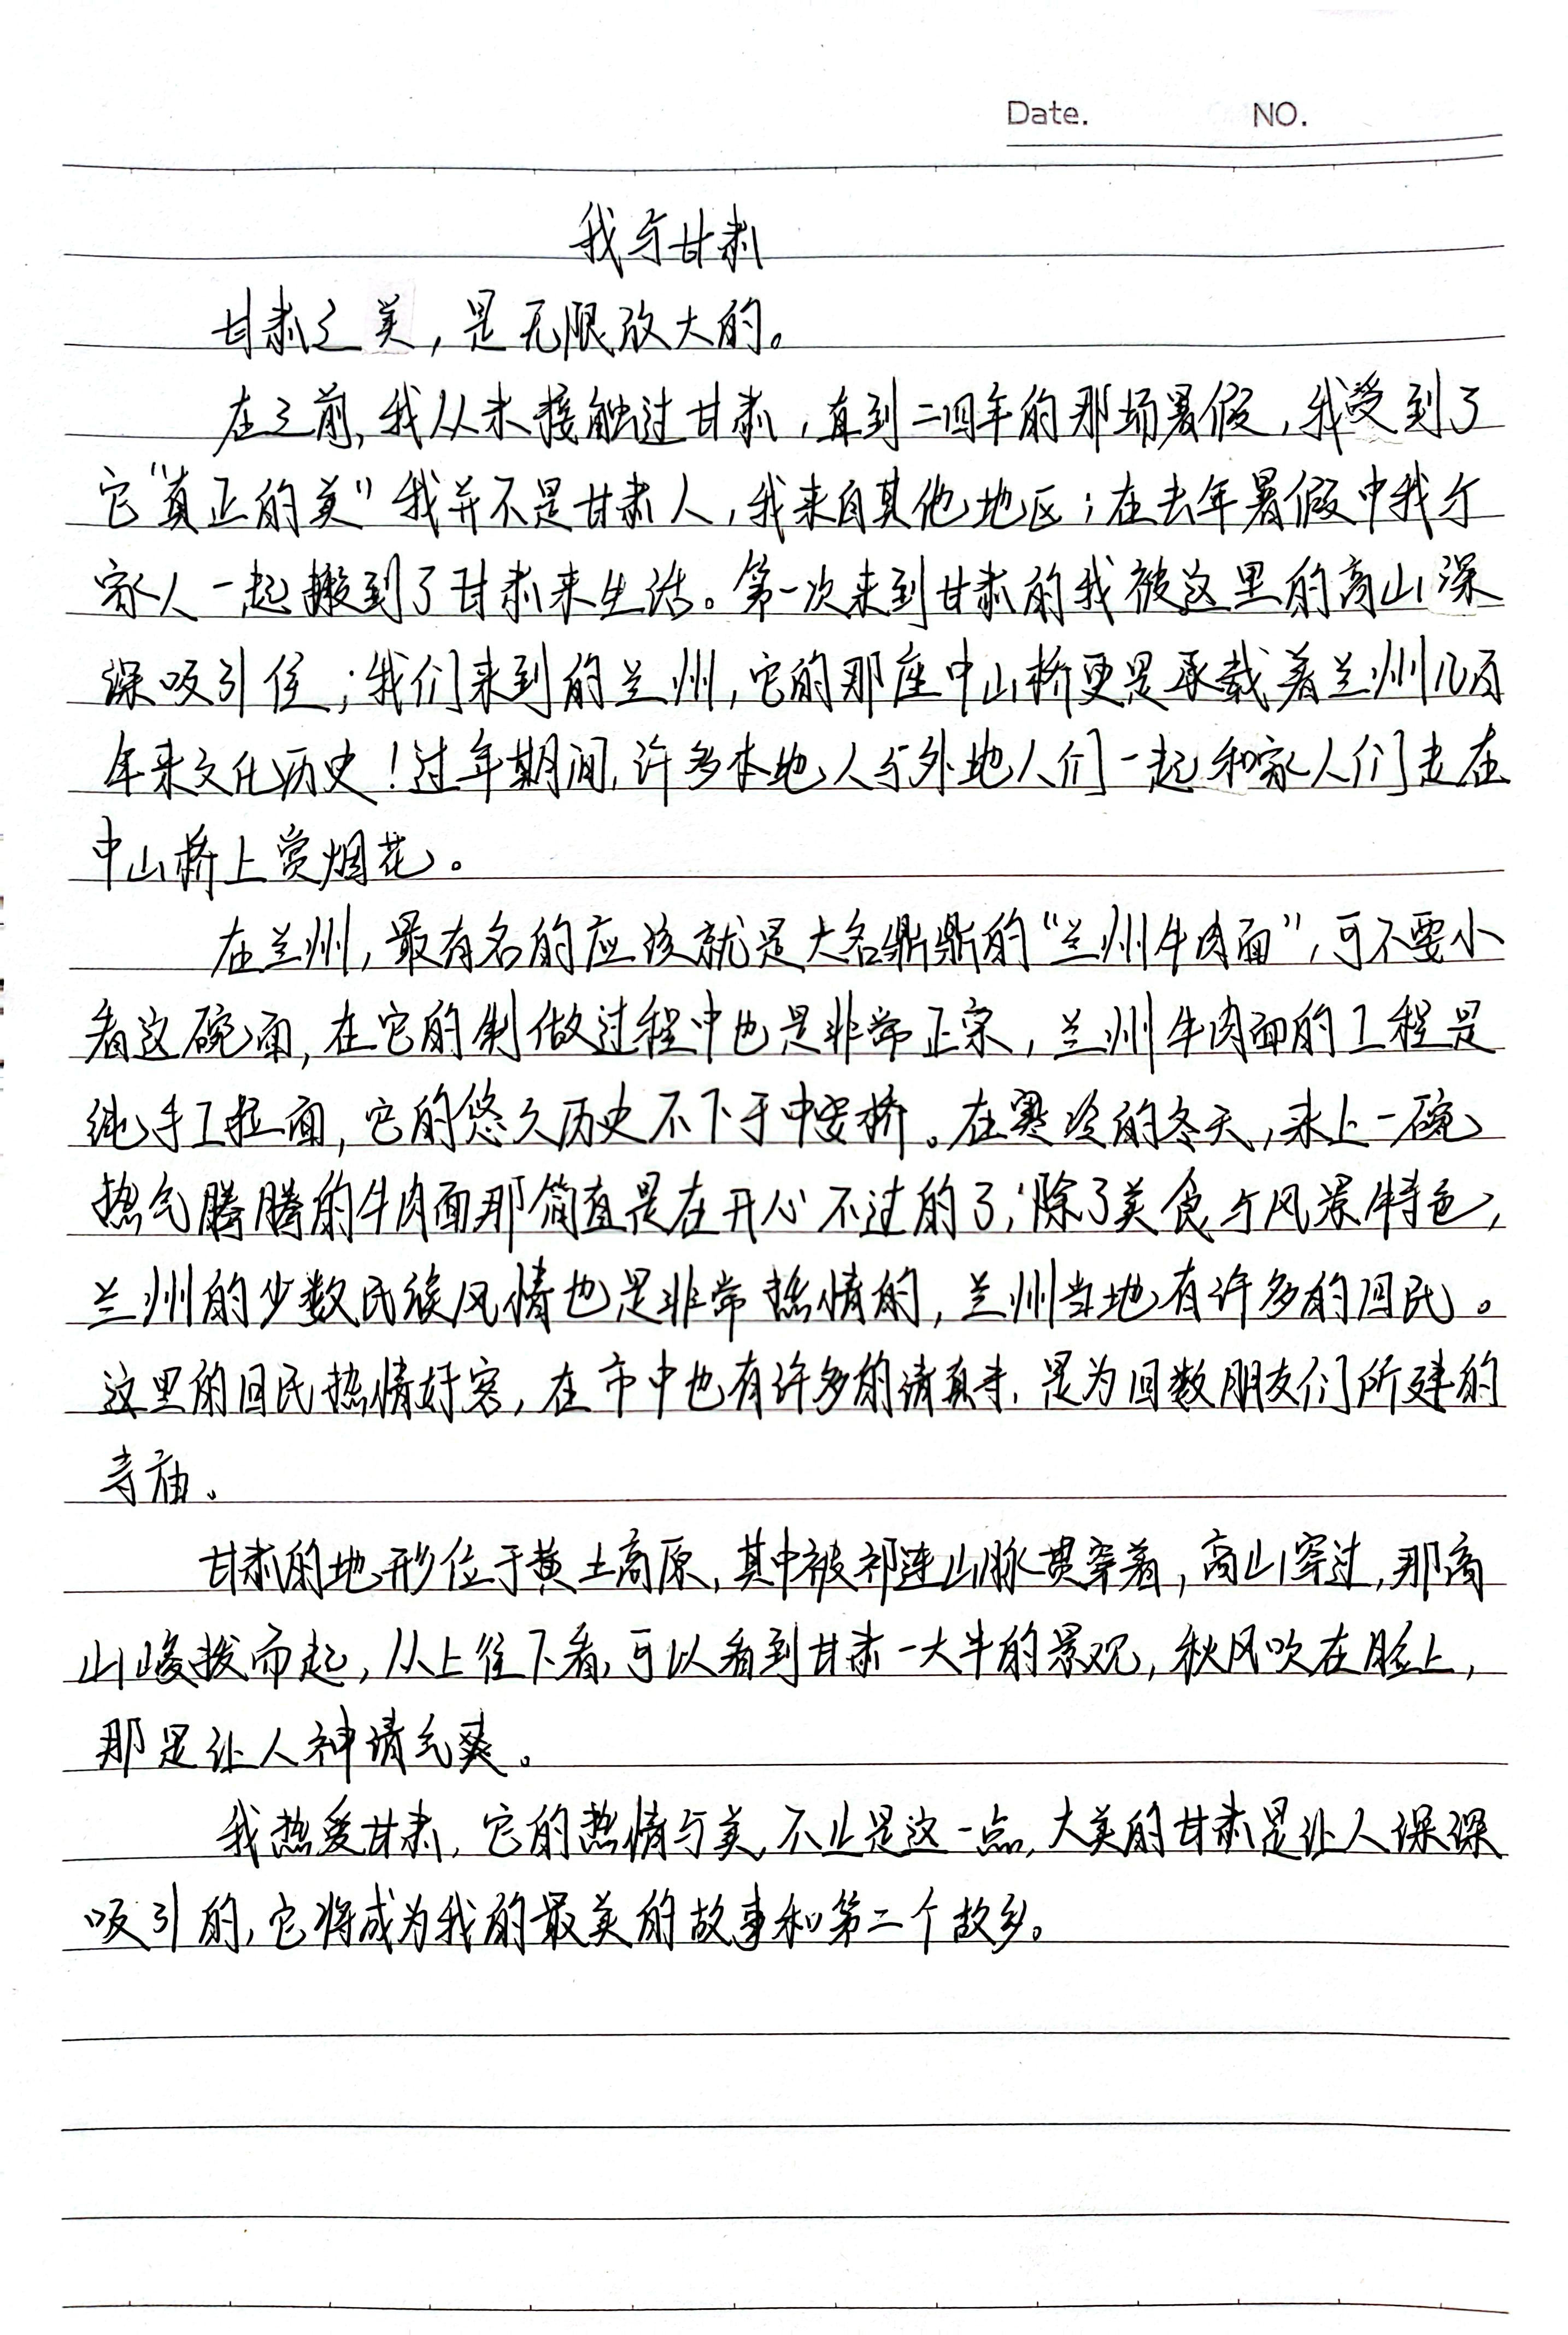 Date. NO.
我与甘肃
甘肃之美，是无限放大的。
在之前，我从未接触过甘肃，直到二四年的那场暑假，我受到了
它“真正的美”我并不是甘肃人，我来自其他地区；在去年暑假中我与
家人一起搬到了甘肃来生活。第一次来到甘肃的我被这里的高山深
深吸引住；我们来到的兰州，它的那座中山桥更是承载着兰州几百
年来文化历史！过年期间，许多本地人与外地人们一起和家人们走在
中山桥上赏烟花。
在兰州，最有名的应该就是大名鼎鼎的“兰州牛肉面”，可不要小
看这碗面，在它的制做过程中也是非常正宗，兰州牛肉面的工程是
纯手工拉面，它的悠久历史不下于中安桥。在寒冷的冬天，来上一碗
热气腾腾的牛肉面那简直是在开心不过的了；除了美食与风景特色，
兰州的少数民族风情也是非常热情的，兰州当地有许多的回民。
这里的回民热情好客，在市中也有许多的清真寺，是为回教朋友们所建的
寺庙。
甘肃的地形位于黄土高原，其中被祁连山脉贯穿着，高山穿过，那高
山峻拨而起，从上往下看，可以看到甘肃一大半的景观，秋风吹在脸上，
那是让人神清气爽。
我热爱甘肃，它的热情与美，不止是这一点，大美的甘肃是让人深深
吸引的，它将成为我的最美的故事和第二个故乡。